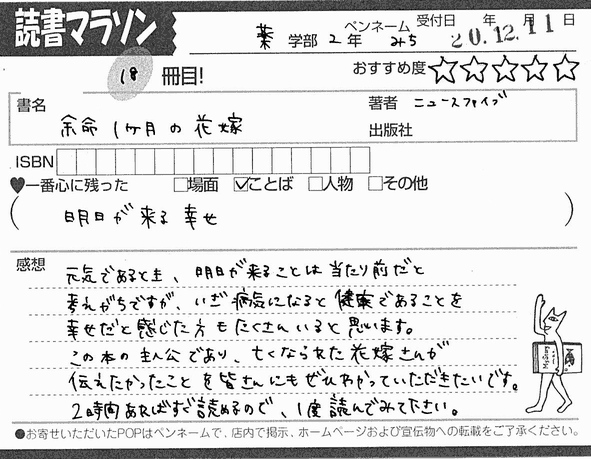 読書マラソン
薬 学部 2 年 ペンネーム みち 受付日 年 月 日
20.12.11
18 冊目!
おすすめ度 ☆☆☆☆☆
書名 余命1ケ月の花嫁
著者 ニュースファイブ
出版社
ISBN
♥一番心に残った □場面 ☑ことば □人物 □その他
(明日が来る幸せ)
感想
元気であるとき、明日が来ることは当たり前だと
考えがちですが、いざ病気になると健康であることを
幸せだと感じた方もたくさんいると思います。
この本の主人公であり、亡くなられた花嫁さんが
伝えたかったことを皆さんにもぜひわかっていただきたいです。
2時間あればすぐ読めるので、1度読んでみて下さい。
●お寄せいただいたPOPはペンネームで、店内で掲示、ホームページおよび宣伝物への転載をご了承ください。